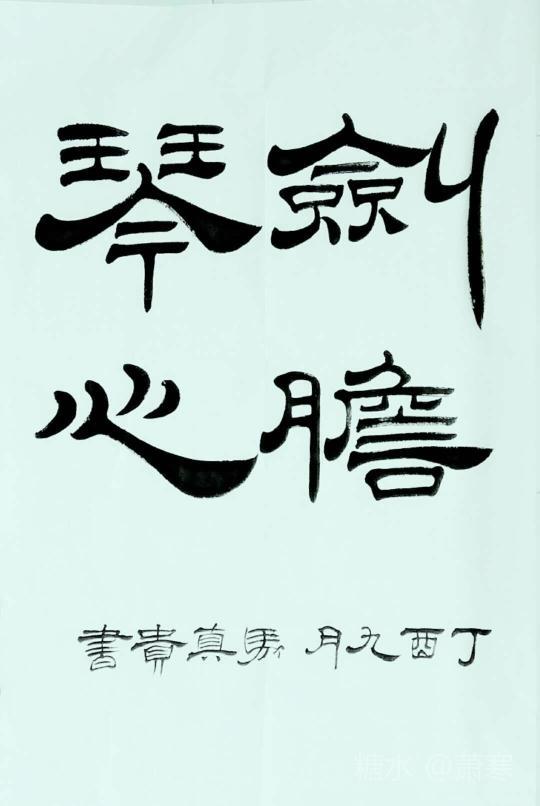 劍膽
琴心
丁酉九月 馬真貴書
糖水 @萧寒